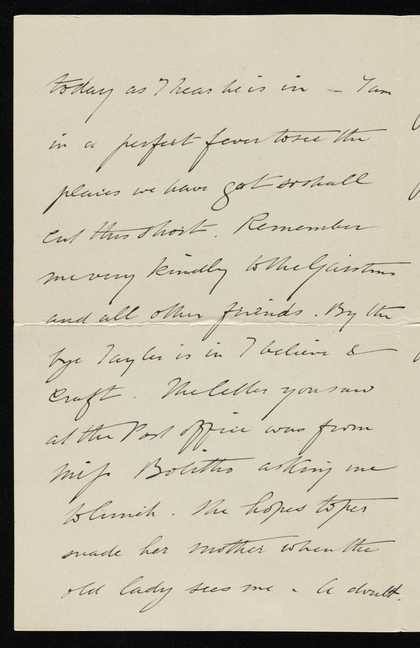 today as I hear he is in – I am
in a perfect fever to see the
places we have got so shall
cut this short. Remember
me very kindly to the
and all other friends. By the
bye Tayler is in I believe &
Craft. The letter you saw
at the Post office was from
Miss Bolitho asking me
to lunch. She hopes to per
suade her mother when the
old lady sees me. A doubt.